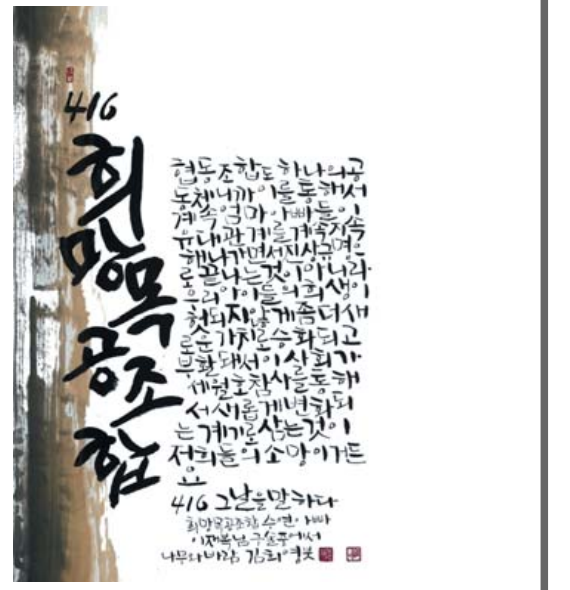 416
희망목공조합
협동조합도 하나의 공
동체니까 이를 통해서
계속 엄마 아빠들이
유대관계를 계속 지속
해나가면서 진상규명으
로 끝나는 것이 아니라
우리 아이들의 희생이
헛되지 않게 좀 더 새
로운 가치로 승화되고
부활돼서 이 사회가
세월호 참사를 통해
서 새롭게 변화되
는 계기로 삼는 것이
저희들의 소망이거든
요
416 그날을 말하다
희망목공조합 수연 아빠
이재복님 구술 중에서
나무와 바람 김희영 붓